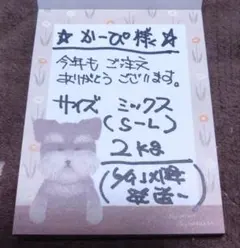 ☆かーぴ様☆
今年も ご注文
ありがとうございます。
サイズ ミックス
(S-L)
2kg